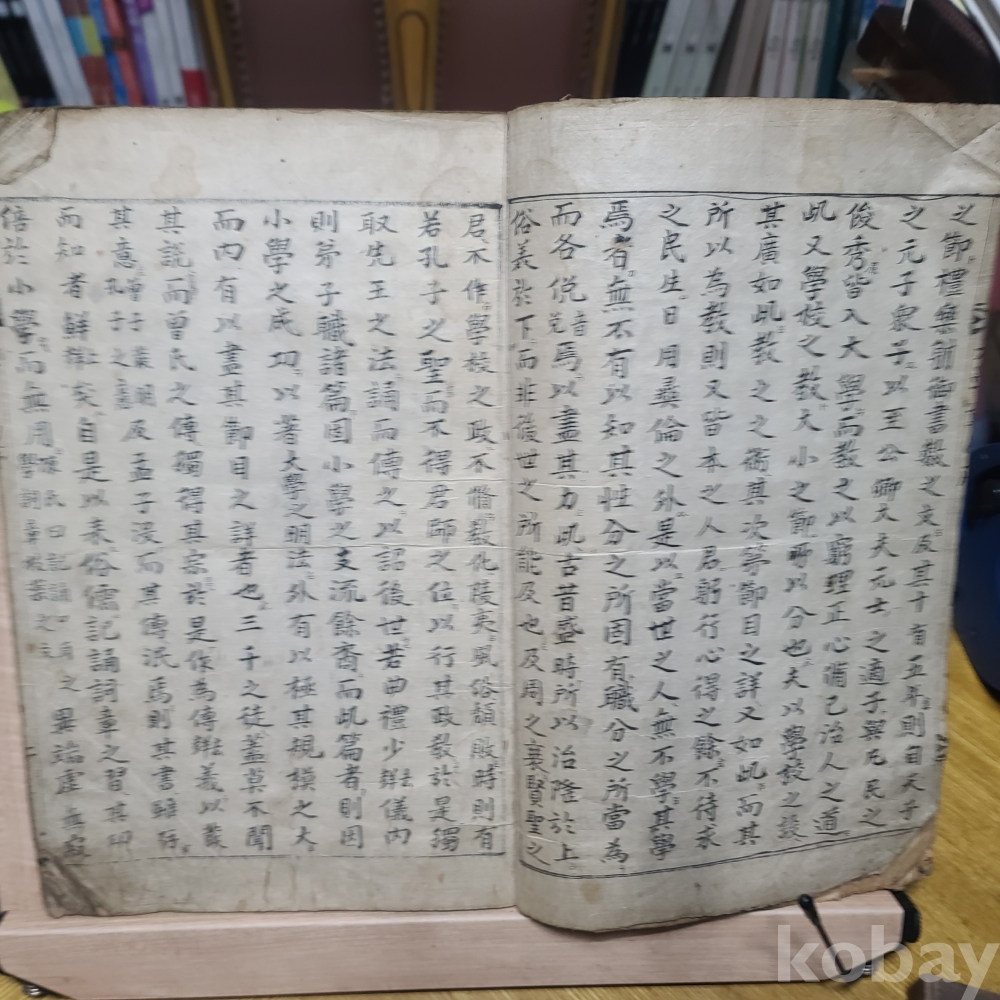 之節禮樂射御書數之文及其十有五年則自天子
之元子衆子以至公卿大夫元士之適子與凡民之
俊秀皆入大學而教之以窮理正心脩己治人之道
此又學校之教大小之節所以分也夫以學校之設
其廣如此教之之術其次第節目之詳又如此而其
所以為教則又皆本之人君躬行心得之餘不待求
之民生日用彝倫之外是以當世之人無不學其學
焉者無不有以知其性分之所固有職分之所當為
而各俛焉以盡其力此古昔盛時所以治隆於上
俗美於下而非後世之所能及也及周之衰賢聖之
君不作學校之政不脩教化陵夷風俗頹敗時則有
若孔子之聖而不得君師之位以行其政教於是獨
取先王之法誦而傳之以詔後世若曲禮少儀內
則弟子職諸篇固小學之支流餘裔而此篇者則因
小學之成功以著大學之明法外有以極其規模之大
而內有以盡其節目之詳者也三千之徒蓋莫不聞
其說而曾氏之傳獨得其宗於是作為傳義以發
其意及孟子沒而其傳泯焉則其書雖存
而知者鮮矣自是以來俗儒記誦詞章之習其功
倍於小學而無用之異端虛無寂
kobay